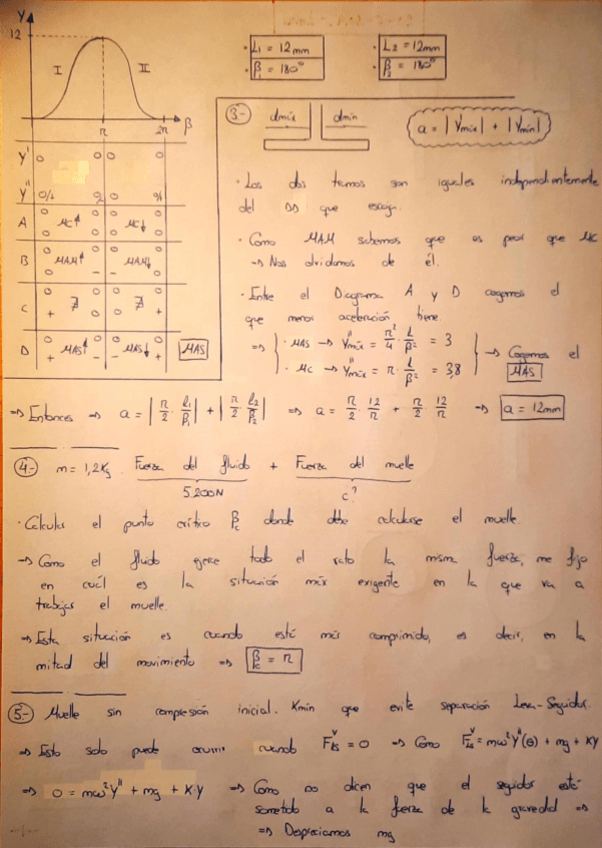 Y
12
I
II
π
2π
β
· L₁ = 12mm
· β₁ = 180°
· L₂ = 12mm
· β₂ = 180°
Y' 0 0 0 0
Y''
A 0 0 MC↑ 0 0 0 0 MC↓ 0 0
B 0 0 MAM↑ 0 - 0 - MAM↓ 0 0
C 0 + ∄ 0 0 ∄ 0 +
D 0 + MAS↑ 0 - 0 - MAS↓ 0 + MAS
3.-
dmáx dmín
a = |Y'máx| + |Y'mín|
· Los dos tramos son iguales independientemente
del DD que escoja.
· Como MAM sabemos que es peor que MC
⇒ Nos olvidamos de él.
· Entre el Diagrama A y D cogemos el
que menos aceleración tiene.
⇒ · MAS → Y''máx = π²/4 · L/β² = 3
· MC → Y''máx = π · L/β² = 3,8
→ Cogemos el
MAS
⇒ Entonces → a = |π/2 · L₁/β₁| + |π/2 · L₂/β₂| ⇒ a = π/2 · 12/π + π/2 · 12/π ⇒ a = 12mm
4.- m = 1,2Kg. Fuerza del fluido + Fuerza del muelle
5.200N
c?
· Calcular el punto crítico βc donde debe calcularse el muelle.
→ Como el fluido ejerce todo el rato la misma fuerza, me fijo
en cuál es la situación más exigente en la que va a
trabajar el muelle.
⇒ Esta situación es cuando está más comprimido, es decir, en la
mitad del movimiento ⇒ βc = π
5.- Muelle sin compresión inicial. Kmín que evite separación Leva-Seguidor.
⇒ Esto solo puede ocurrir cuando = 0 ⇒ Como = mω²Y''(θ) + mg + KY
⇒ 0 = mω²Y'' + mg + K·Y ⇒ Como no dicen que el seguidor está
sometido a la fuerza de la gravedad ⇒
⇒ Despreciamos mg